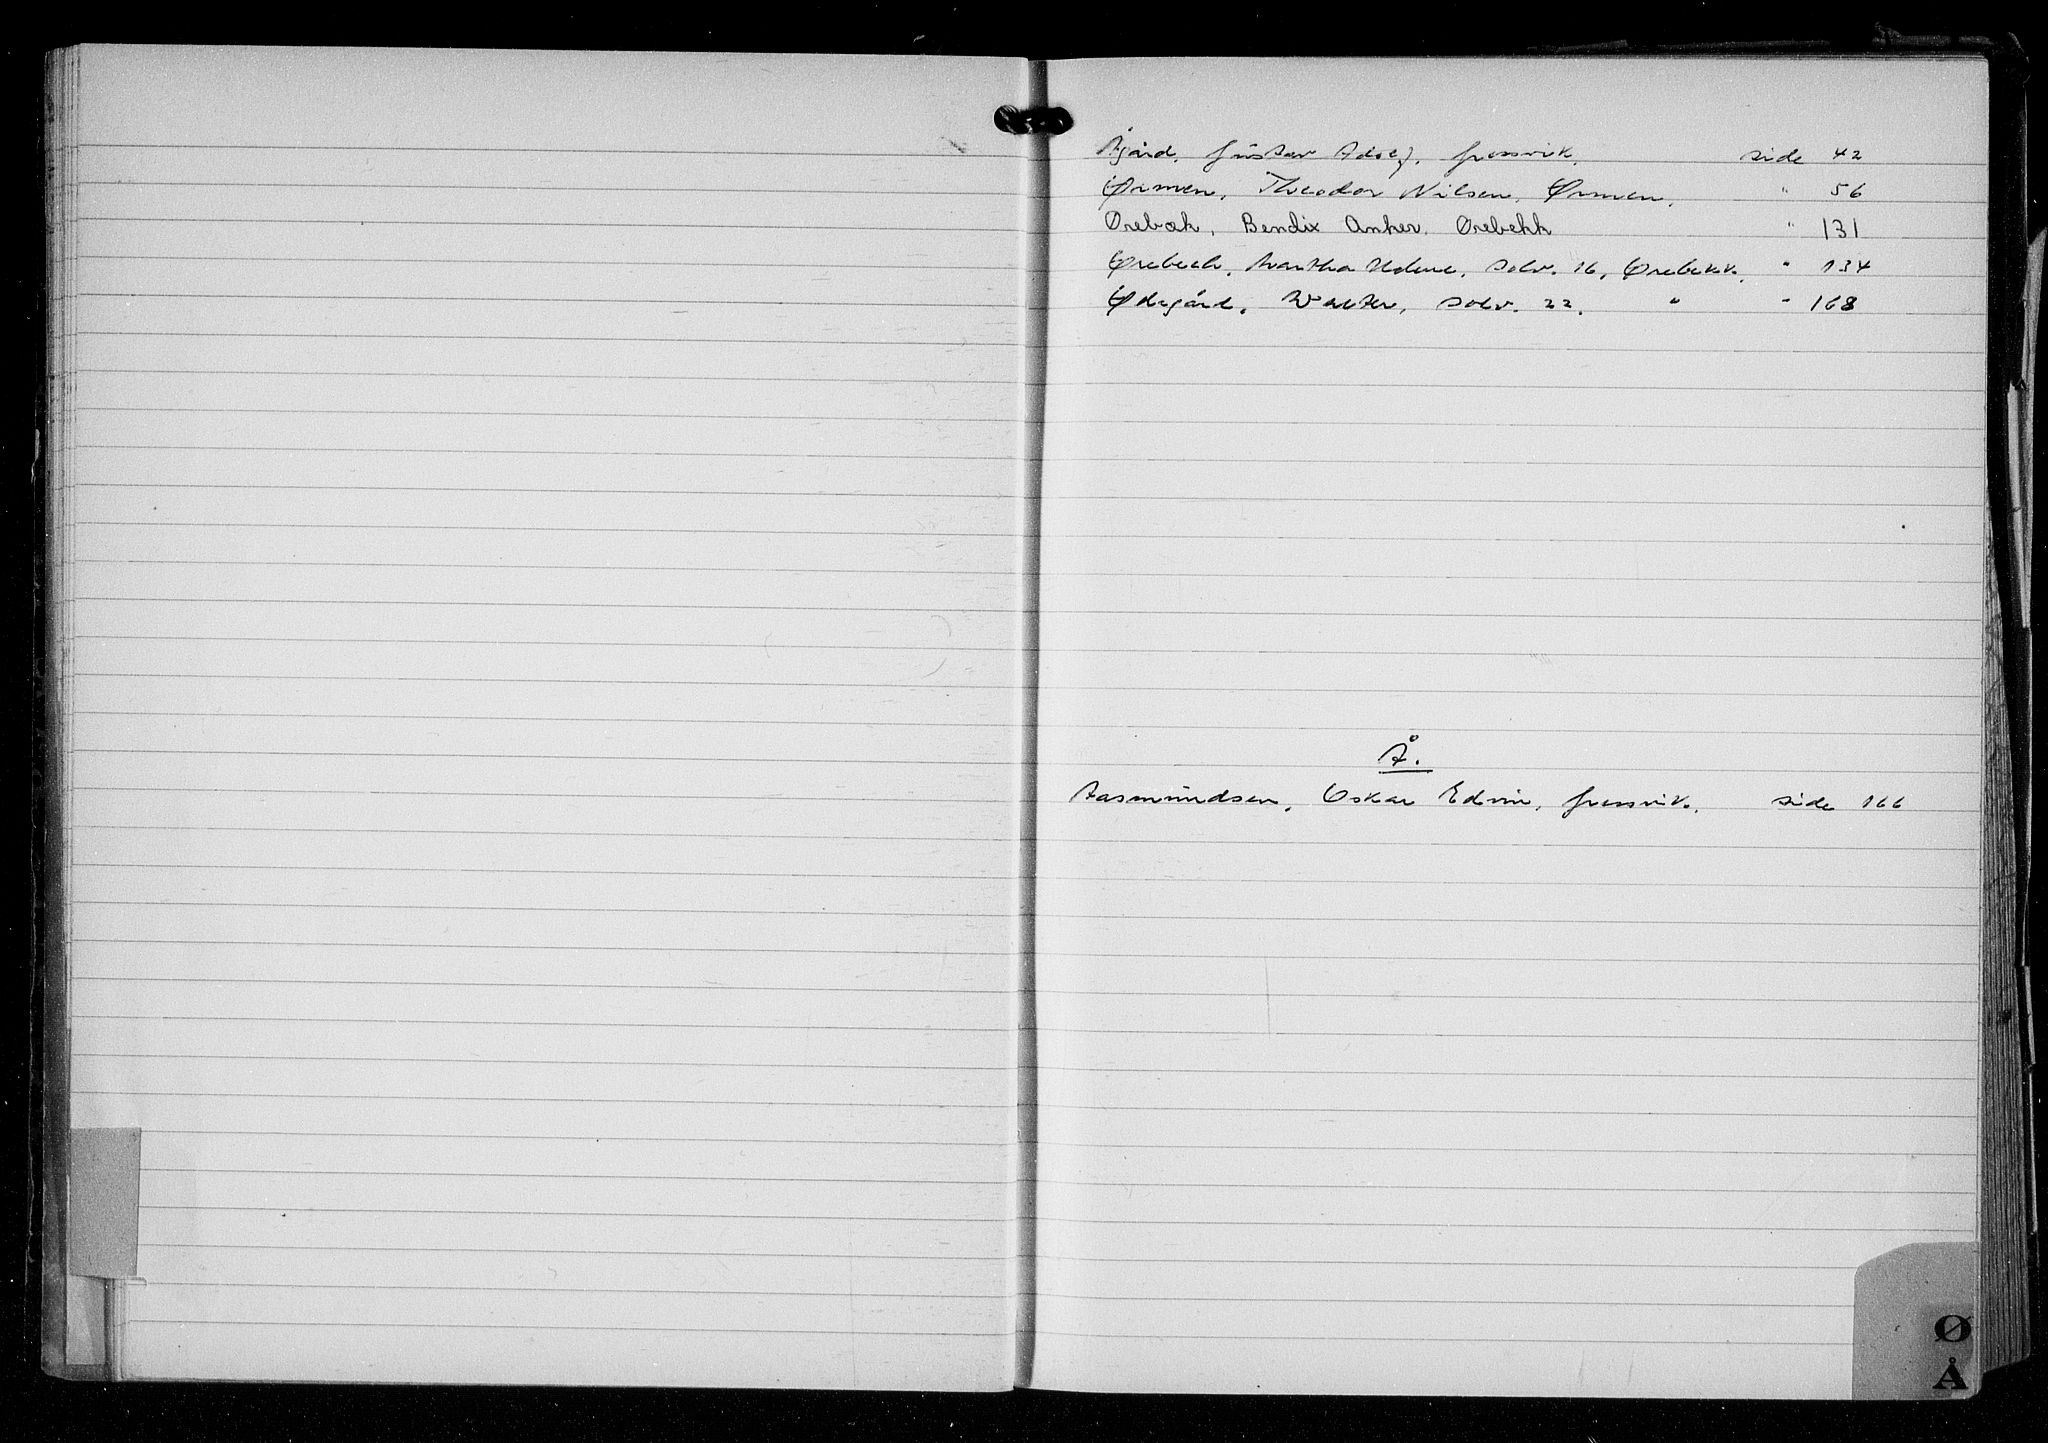 Øgård, Gustav Adolf, Gressvik, side 42
Ørmen, Theodor Nilsen, Ørmen, " 56
Ørebæk, Bendix Anker, Ørebekk " 131
Ørebech, Martha Helene, Solv. 16, Ørebekk. " 134
Ødegård, Walter, Solv. 22. " " 168
Å.
Aasmundsen, Oskar Edvin, Gressvik. side 166
Ø
Å